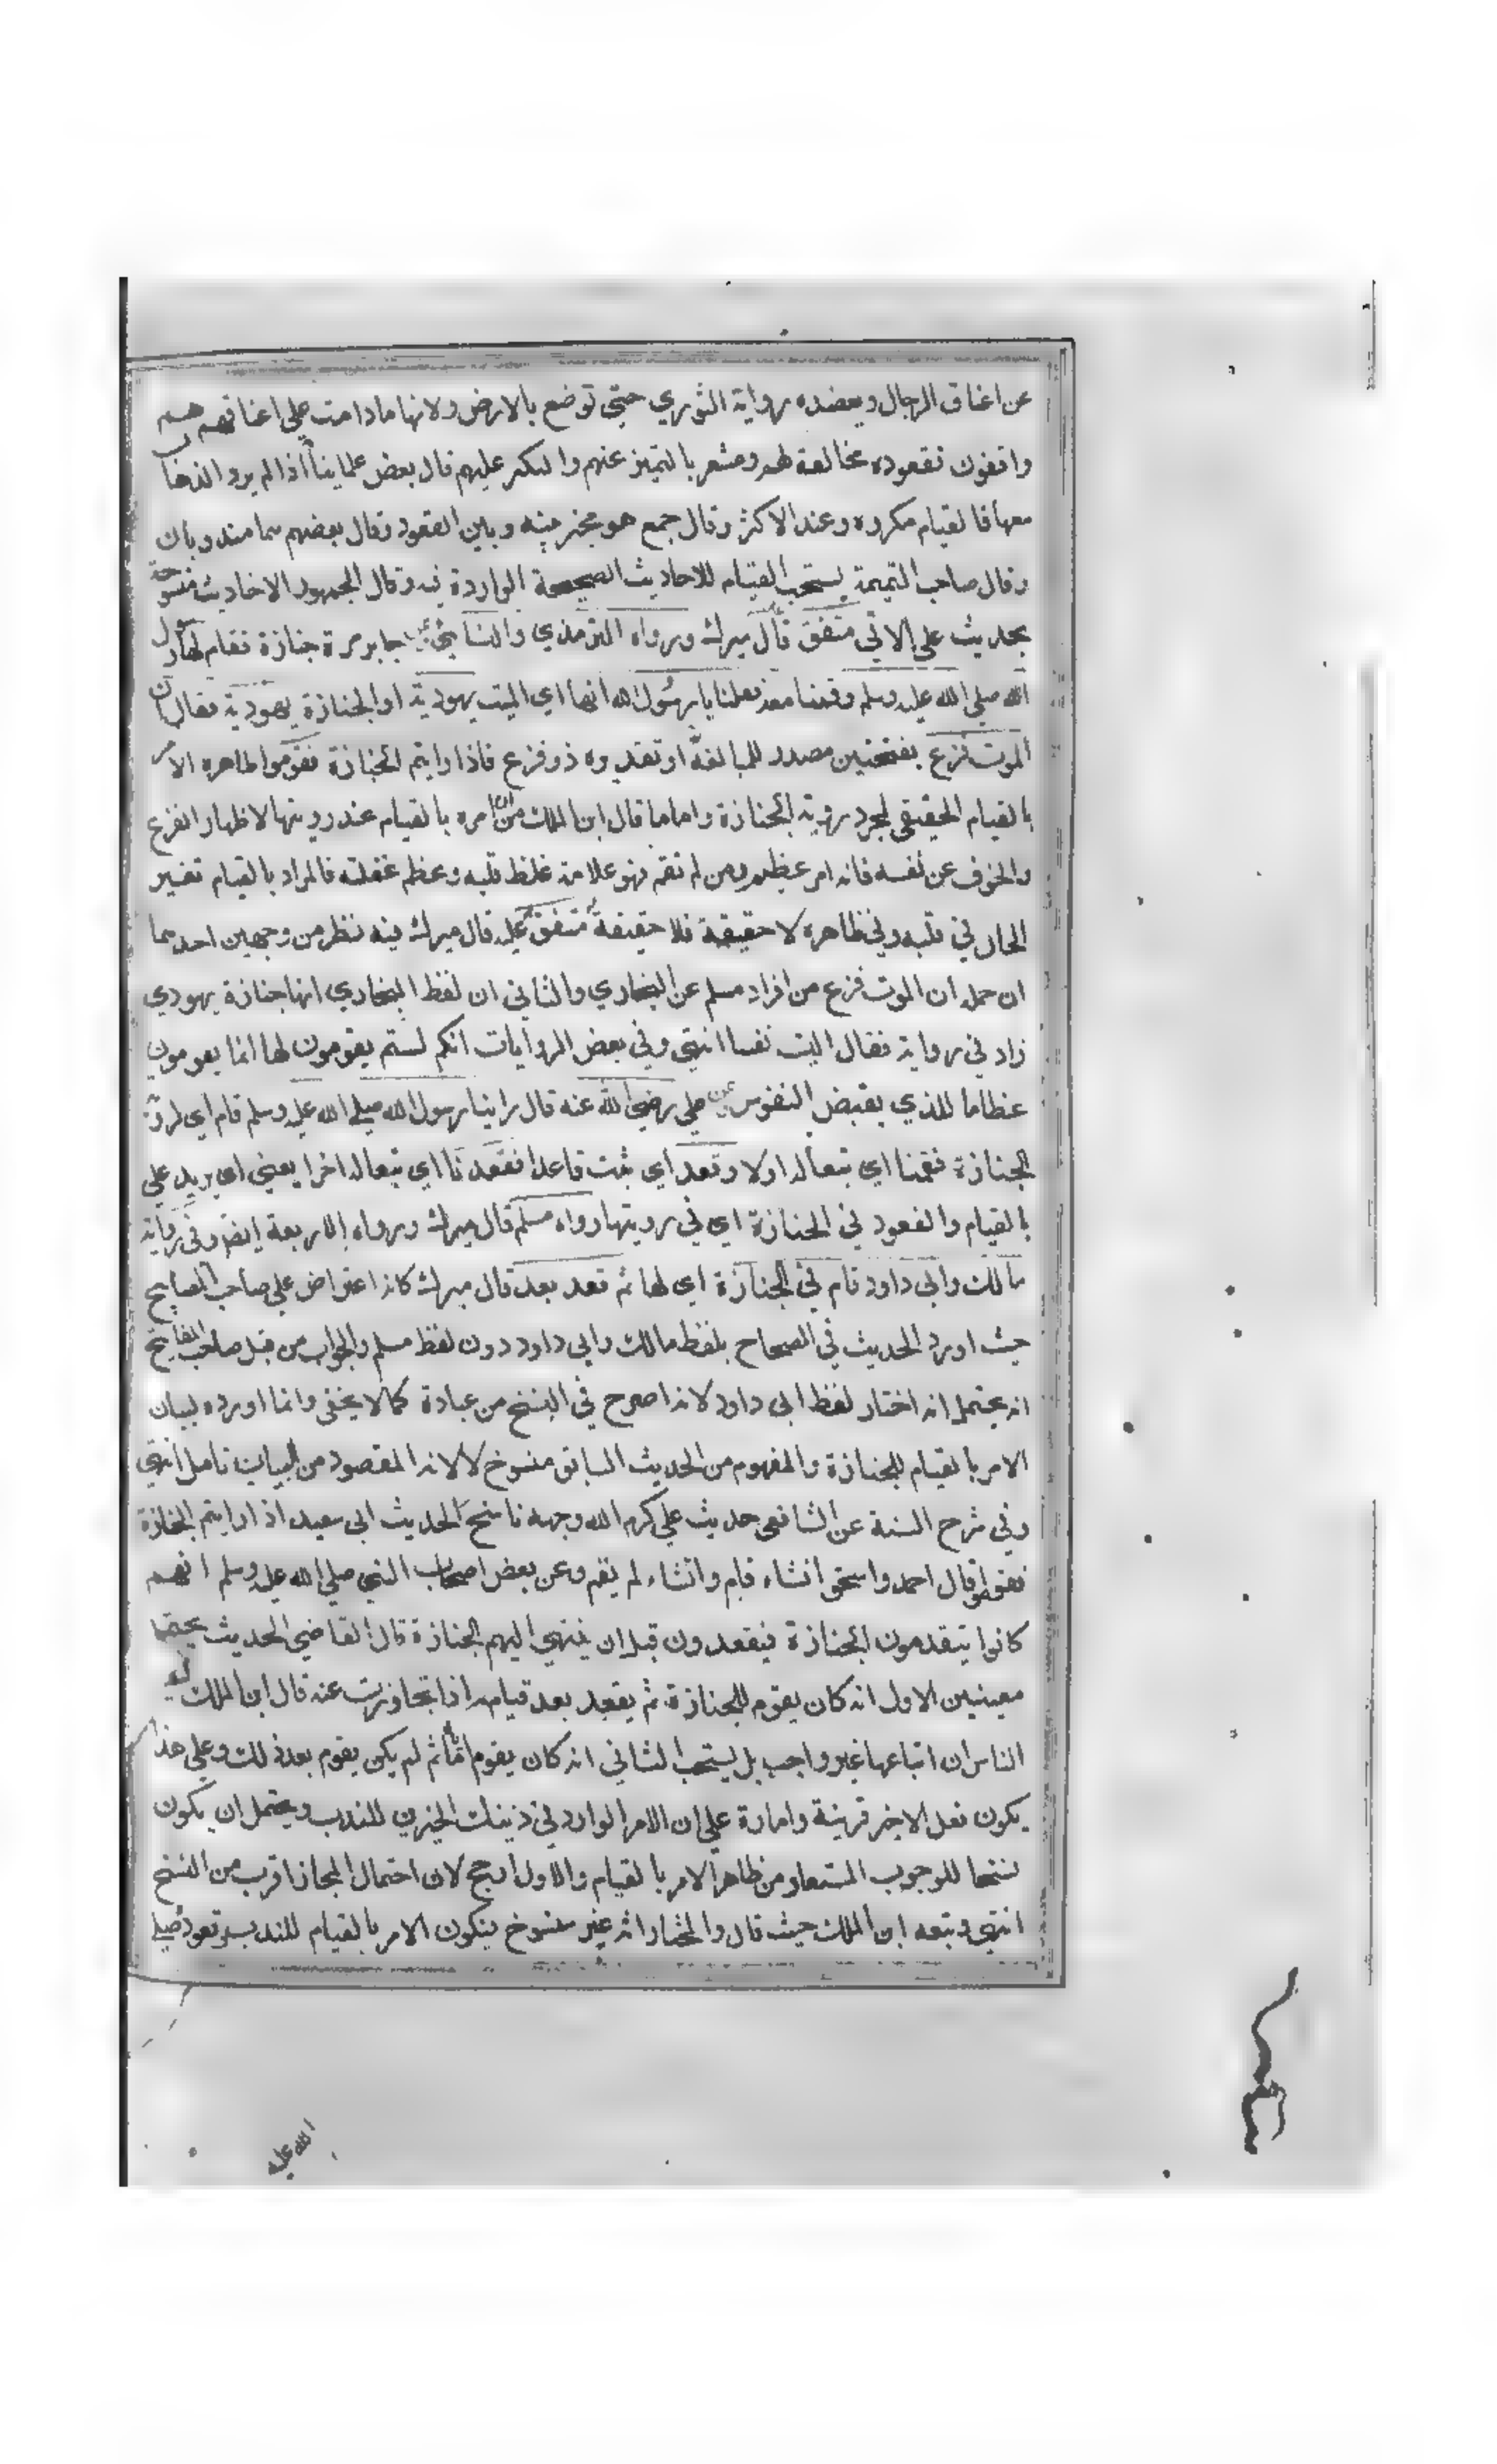 عن اعناق الرجال ويعضده رواية الثوري حتى توضع بالارض ولانها ما دامت على اعناقهم هم
واقفون فقعوده مخالفة لهم ومشعر بالتميز عنهم والتكبر عليهم قال بعض علماينا اذا لم يرد الذهاب
معها فالقيام مكروه وعند الاكثر وقال جمع هو مخير بينه وبين القعود وقال بعضهم هما مندوبان
وقال صاحب التتمة يستحب القيام للاحاديث الصحيحة الواردة فيه وقال الجمهور الاحاديث منسوخة
بحديث علي الاتي متفق قال ميرك ورواه الترمذي والنسائي عن جابر مرة جنازة فقام لها رسول
الله صلى الله عليه وسلم وقمنا معه فقلنا يا رسول الله انها اي الميت يهودية او الجنازة يهودية فقال ان
الموت فزع بفتحتين مصدر للمبالغة او تقديره ذو فزع فاذا رايتم الجنازة فقوموا ظاهره الامر
بالقيام الحقيقي لمجرد روية الجنازة واما ما قال ابن الملك من ان امره بالقيام عند رويتها لاظهار الفزع
والخوف عن نفسه فانه امر عظيم ومن لم تقم فهو علامة غلظ قلبه وعظم غفلته فالمراد بالقيام تغير
الحال في قلبه وفي ظاهره لا حقيقة فلا حقيقة متفق عليه قال ميرك فيه نظر من وجهين احدهما
ان جملة ان الموت فزع من افراد مسلم عن البخاري والثاني ان لفظ البخاري انها جنازة يهودي
زاد في رواية فقال اليست نفسا انتهى وفي بعض الروايات انكم لستم يقومون لها انما يقومون
عظاما للذي يقبض النفوس عن علي رضي الله عنه قال راينا رسول الله صلى الله عليه وسلم قام اي لروية
الجنازة فقمنا اي تبعا له اولا وقعد اي ثبت قاعدا فقعدنا اي تبعا له اخرا يعني اي يريد علي
بالقيام والقعود في الجنازة اي في رويتها رواه مسلم قال ميرك ورواه الاربعة ايضا وفي رواية
مالك وابي داود قام في الجنازة اي لها ثم قعد بعد قال ميرك كانه اعتراض على صاحب المصابيح
حيث اورد الحديث في الصحاح بلفظ مالك وابي داود دون لفظ مسلم والجواب من قبل صاحب المصابيح
انه يحتمل انه اختار لفظ ابي داود لانه اصرح في النسخ من عبادة كما لا يخفى وانما اورده لبيان
الامر بالقيام للجنازة والمفهوم من الحديث السابق منسوخ لا لانه المقصود من البيان تامل انتهى
وفي شرح السنة عن الشافعي حديث علي كرم الله وجهه ناسخ لحديث ابي سعيد اذا رايتم الجنازة
فقوموا قال احمد واسحق ان شاء قام وان شاء لم يقم وعن بعض اصحاب النبي صلى الله عليه وسلم انهم
كانوا يتقدمون الجنازة فيقعدون قبل ان ينتهي اليهم الجنازة قال القاضي الحديث يحتمل
معينين الاول انه كان يقوم للجنازة ثم يقعد بعد قيامه اذا تجاوزت عنه قال ابن الملك
الناس ان اتباعها غير واجب بل يستحب الثاني انه كان يقوم ثم لم يكن يقوم بعد ذلك وعلى هذا
يكون فعل الاخير قرينة وامارة على ان الامر الوارد في ذينك الخبرين للندب ويحتمل ان يكون
نسخا للوجوب المستفاد من ظاهر الامر بالقيام والاول ارجح لان احتمال المجاز اقرب من النسخ
انتهى وتبعه ابن الملك حيث قال والمختار انه غير منسوخ فيكون الامر بالقيام للندب وقعوده صلى
الله عليه